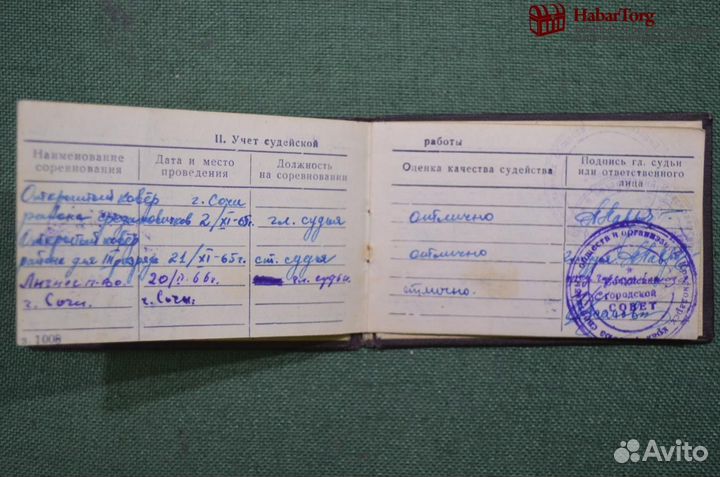 HabarTorg
II. Учет судейской работы
Наименование соревнования
Дата и место проведения
Должность на соревновании
Оценка качества судейства
Подпись гл. судьи или ответственного лица
Открытый ковёр г. Сочи
района 2/XI-65г. гл. судья отлично
Открытый ковёр
района для 21/XI-65г. ст. судья отлично
Личное п-во 20/II-66г. гл. судья
г. Сочи. г. Сочи. отлично.
Сочинский
городской
СОВЕТ
з. 1006
Avito